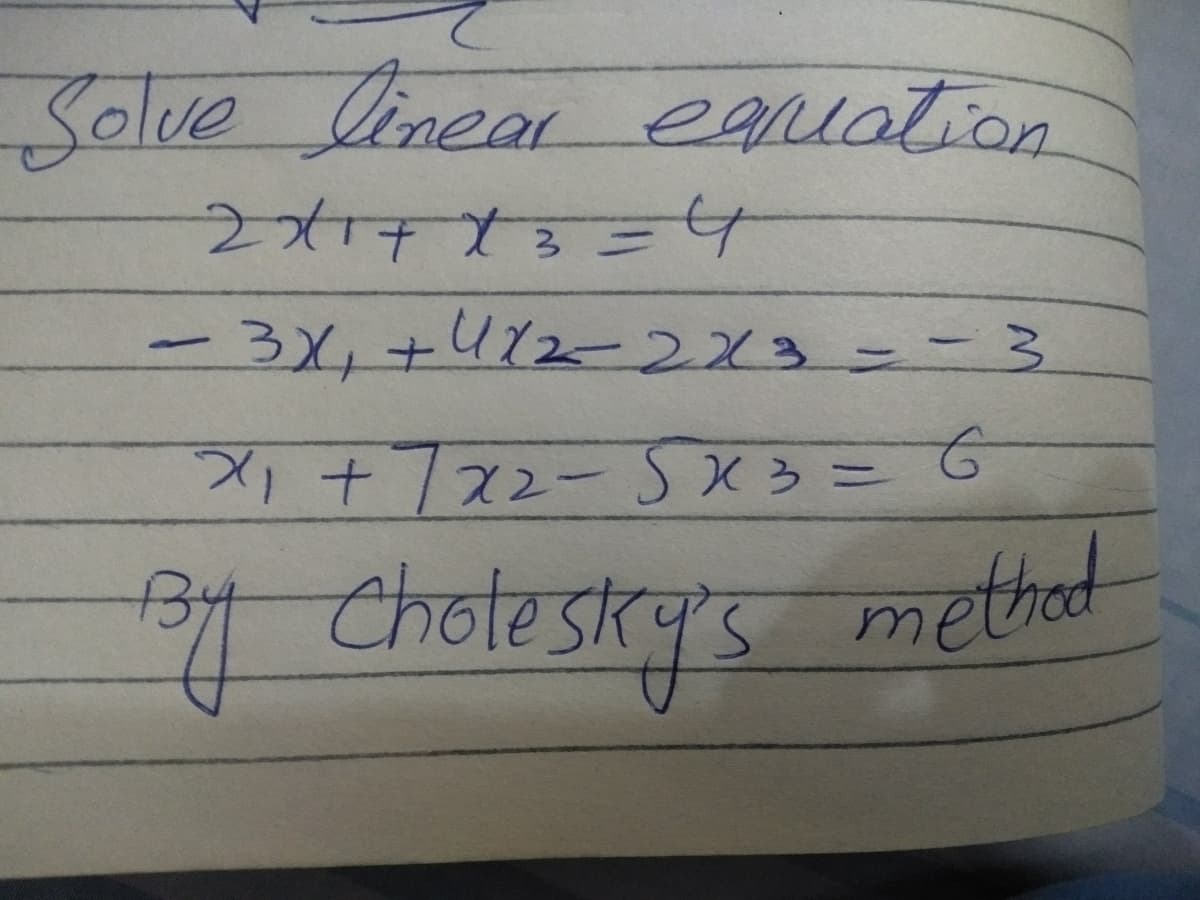 Solve linear equation
2x1 + x3 = 4
- 3x1 + 4x2 - 2x3 = - 3
x1 + 7x2 - 5x3 = 6
By Cholesky's method